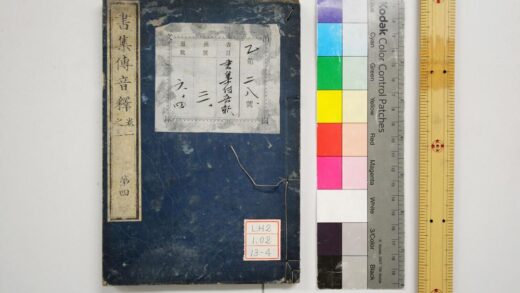 書集傳音釋
卷一
之三
第四
乙第二八號
書目
書集傳音釈
冊號
三、
六、四
LH2
1.02
13-4
Kodak
Color Control Patches
Cyan
Green
Yellow
Red
Magenta
White
3/Color
Black